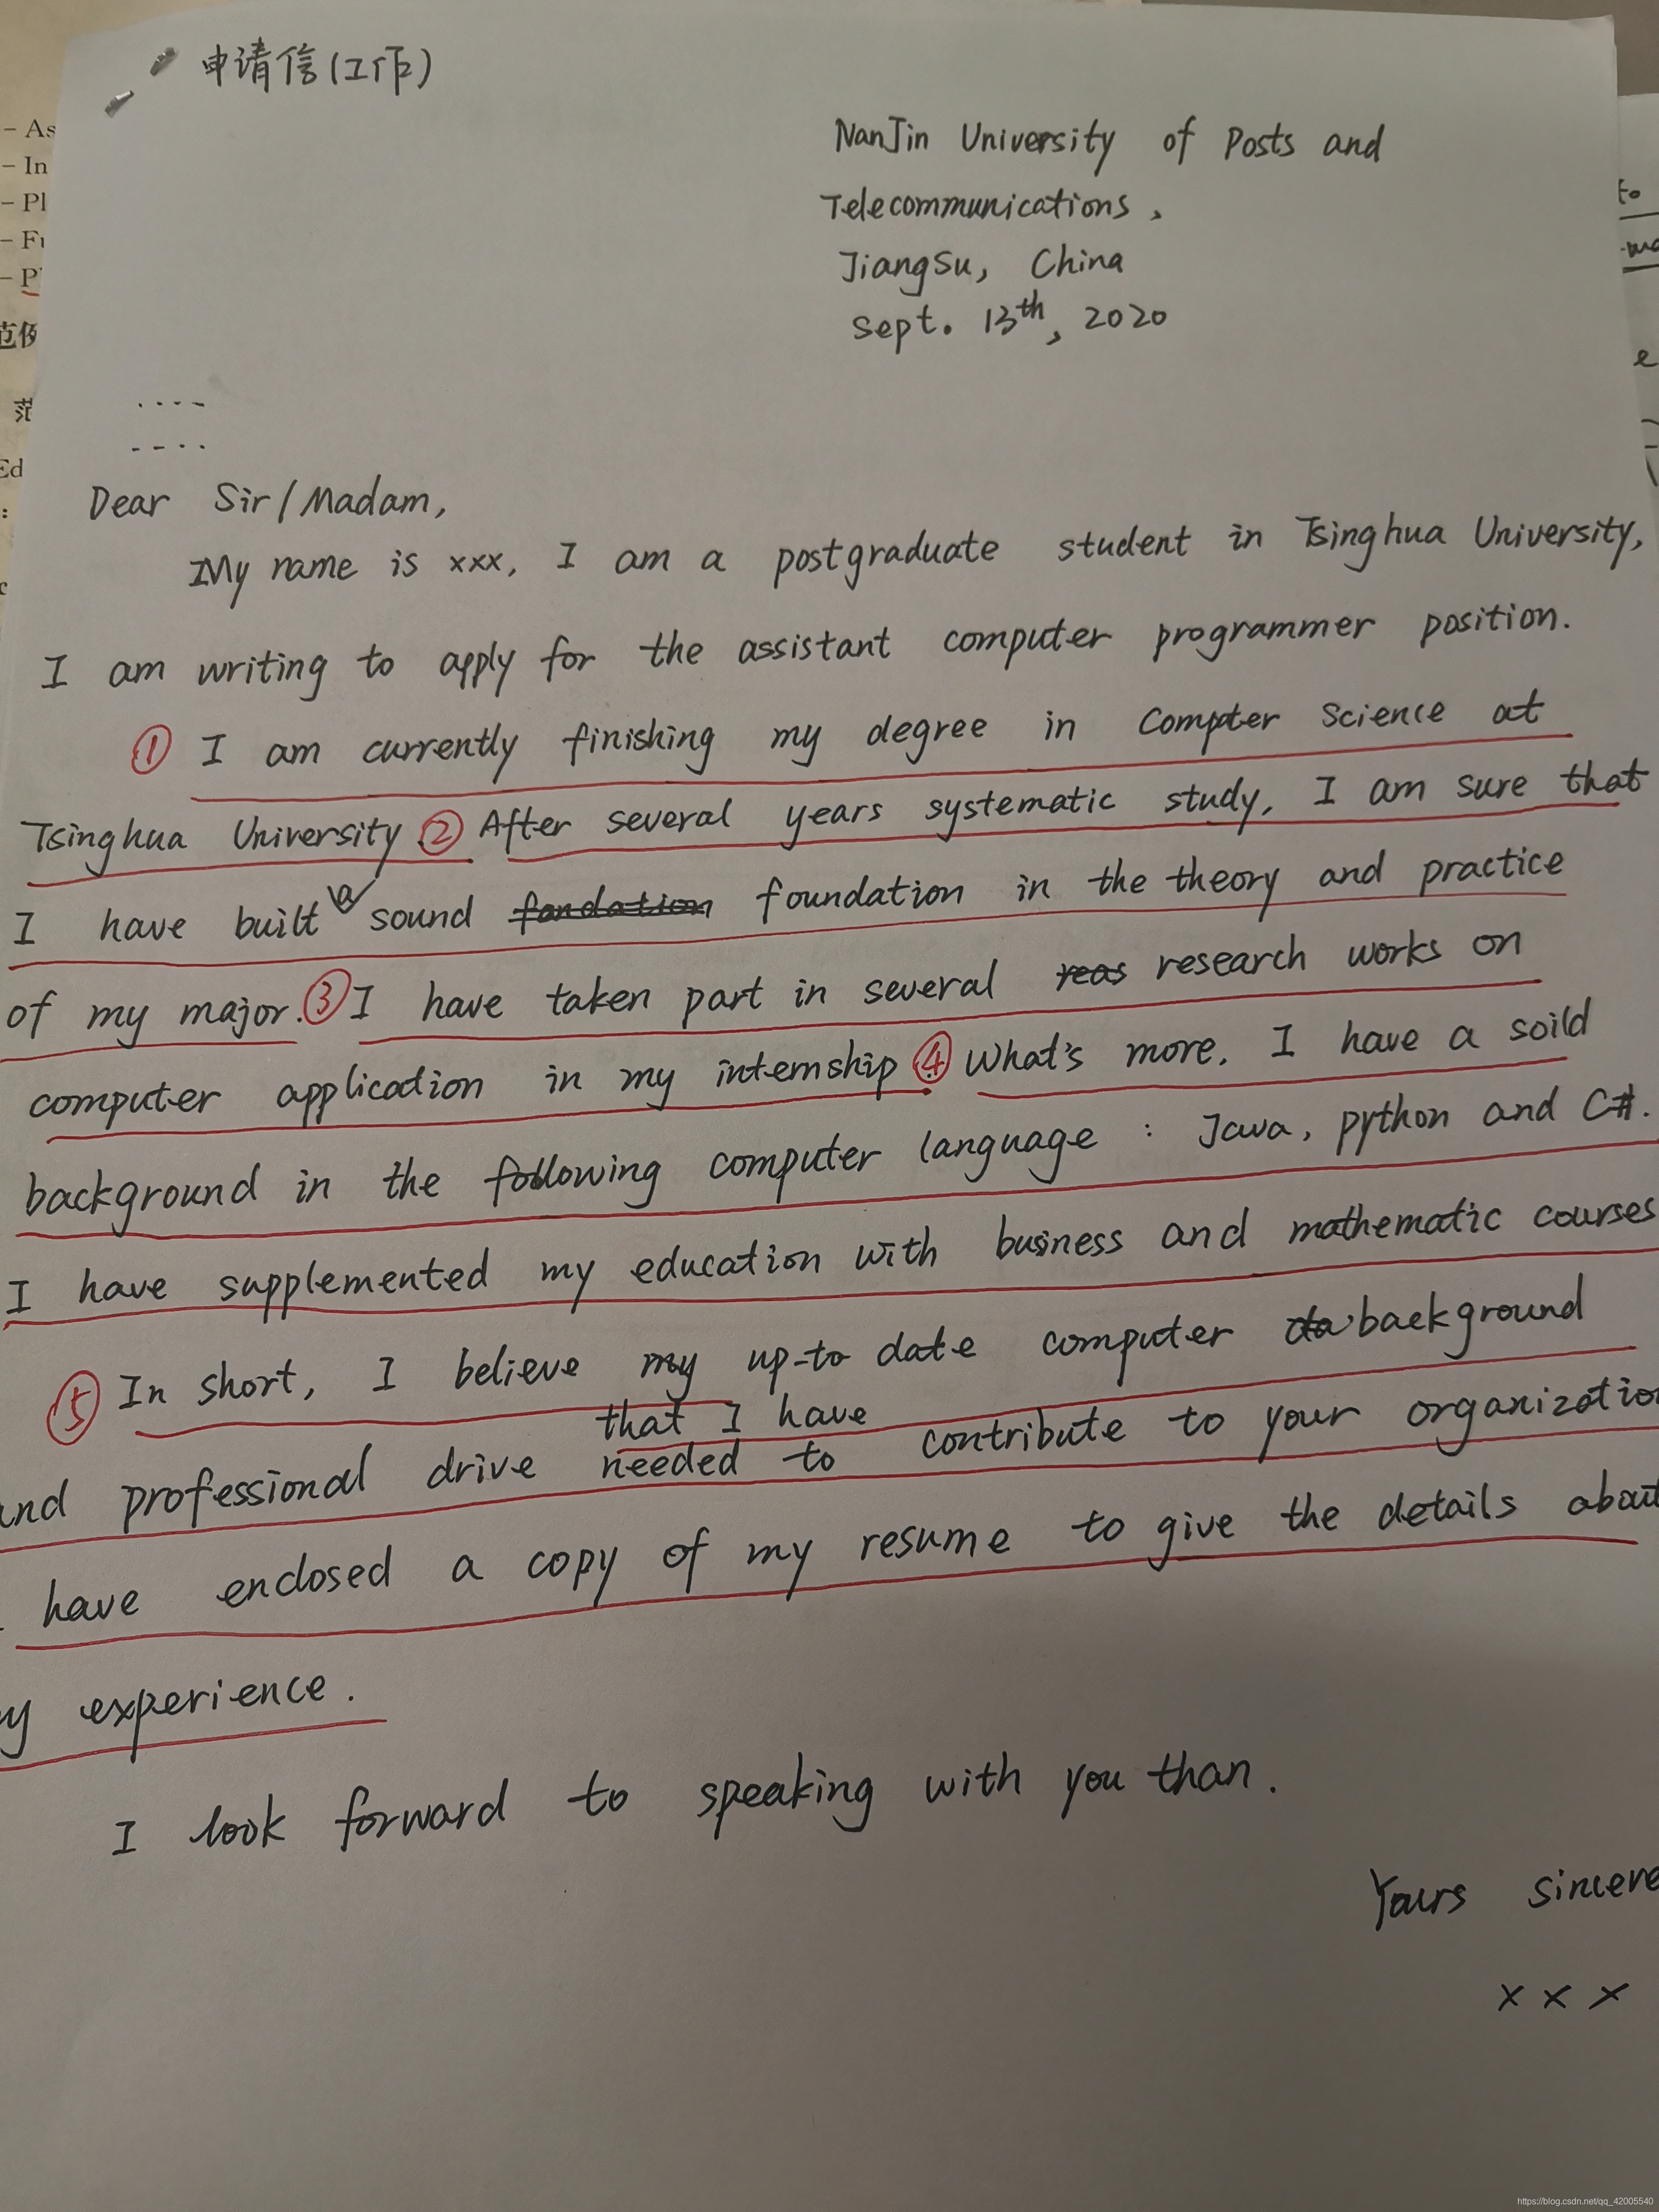 申请信(工作)
NanJin University of Posts and
Telecommunications,
JiangSu, China
Sept. 13th, 2020
- As
- In
- Pl
- Fu
- P
范例
范
Ed
to
e
Dear Sir/Madam,
My name is xxx, I am a postgraduate student in Tsinghua University,
I am writing to apply for the assistant computer programmer position.
① I am currently finishing my degree in Compter Science at
Tsinghua University. ② After several years systematic study, I am sure that
I have built a sound fondation foundation in the theory and practice
of my major. ③ I have taken part in several reas research works on
computer application in my internship ④ What's more, I have a soild
background in the following computer language : Java, python and C#.
I have supplemented my education with business and mathematic courses
⑤ In short, I believe my up-to date computer da background
that I have
and professional drive needed to contribute to your organizatio
have enclosed a copy of my resume to give the details about
y experience.
I look forward to speaking with you than.
Yours sincere
x x x
https://blog.csdn.net/qq_42005540